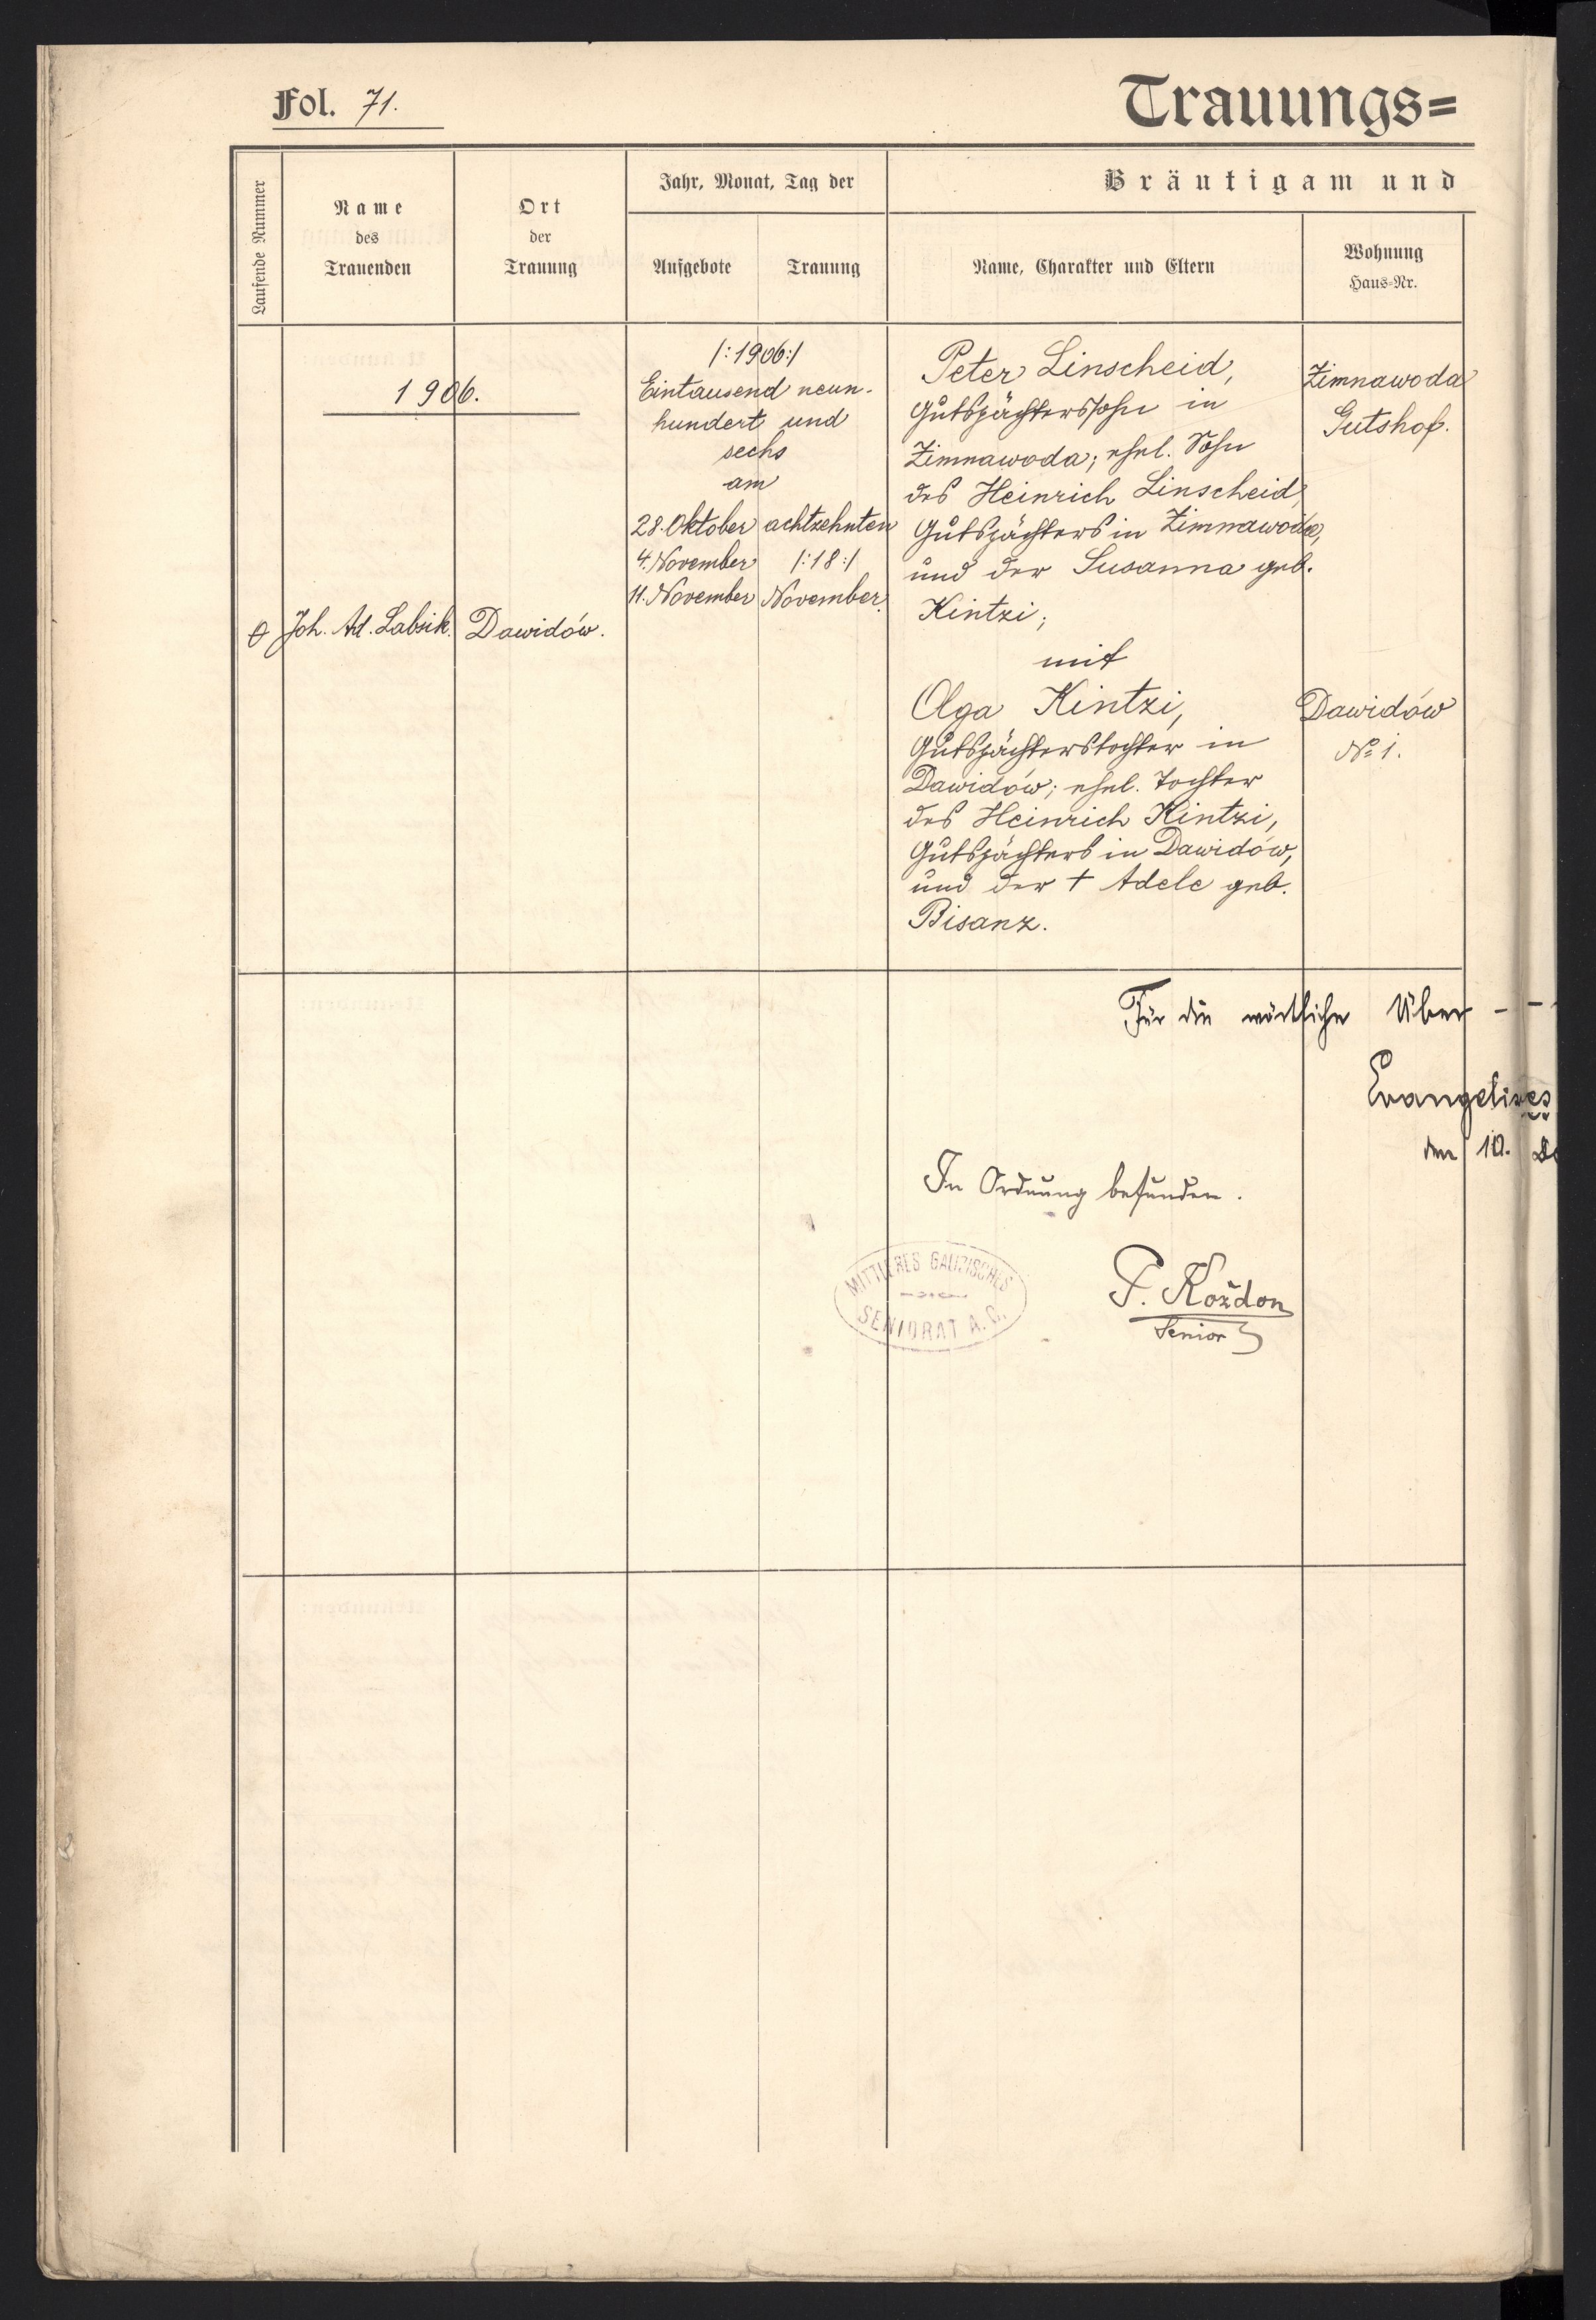 Fol. 71.
Trauungs=
Laufende Nummer
Name
des
Trauenden
Ort
der
Trauung
Jahr, Monat, Tag der
Aufgebote
Trauung
Bräutigam und
Name, Charakter und Eltern
Wohnung
Haus-Nr.
1906.
Joh. Ad. Labsik.
Dawidów.
/:1906:/
Eintausend neun-
hundert und
sechs
am
28. Oktober
4. November
11. November
achtzehnten
/:18:/
November.
Peter Linscheid,
Gutspächterssohn in
Zimnawoda; ehel. Sohn
des Heinrich Linscheid,
Gutspächters in Zimnawoda,
und der Susanna geb.
Kintzi;
mit
Olga Kintzi,
Gutspächterstochter in
Dawidów; ehel. Tochter
des Heinrich Kintzi,
Gutspächters in Dawidów,
und der † Adele geb.
Bisanz.
Zimnawoda
Gutshof.
Dawidów
№ 1.
Für die wörtliche Über - -
den 10.
In Ordnung befunden.
MITTLERES GALIZISCHES
SENIORAT A. C.
P. Koždon
Senior